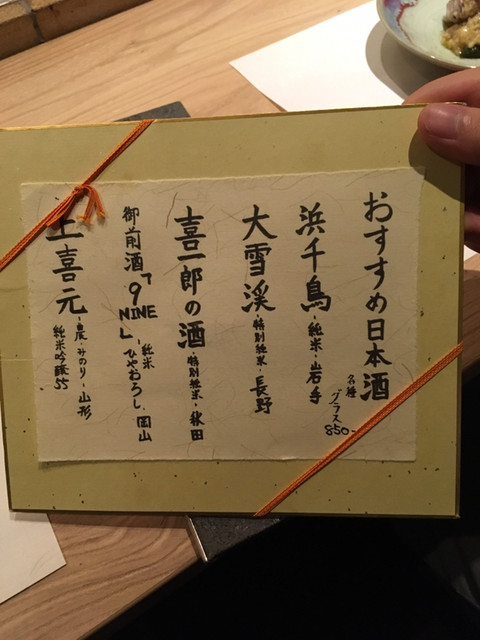 おすすめ日本酒
各種
グラス
850-
浜千鳥-純米-岩手
大雪渓-特別純米-長野
喜一郎の酒-特別純米-秋田
御前酒「9 NINE」純米 ひやおろし 岡山
上喜元-農-みのり-山形
純米吟醸55